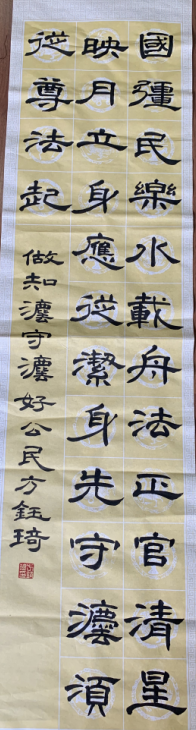 國彊民樂水載舟法正官清星
映月立身應從潔身先守灋須
從尊法起
做知灋守灋好公民方鈺琦